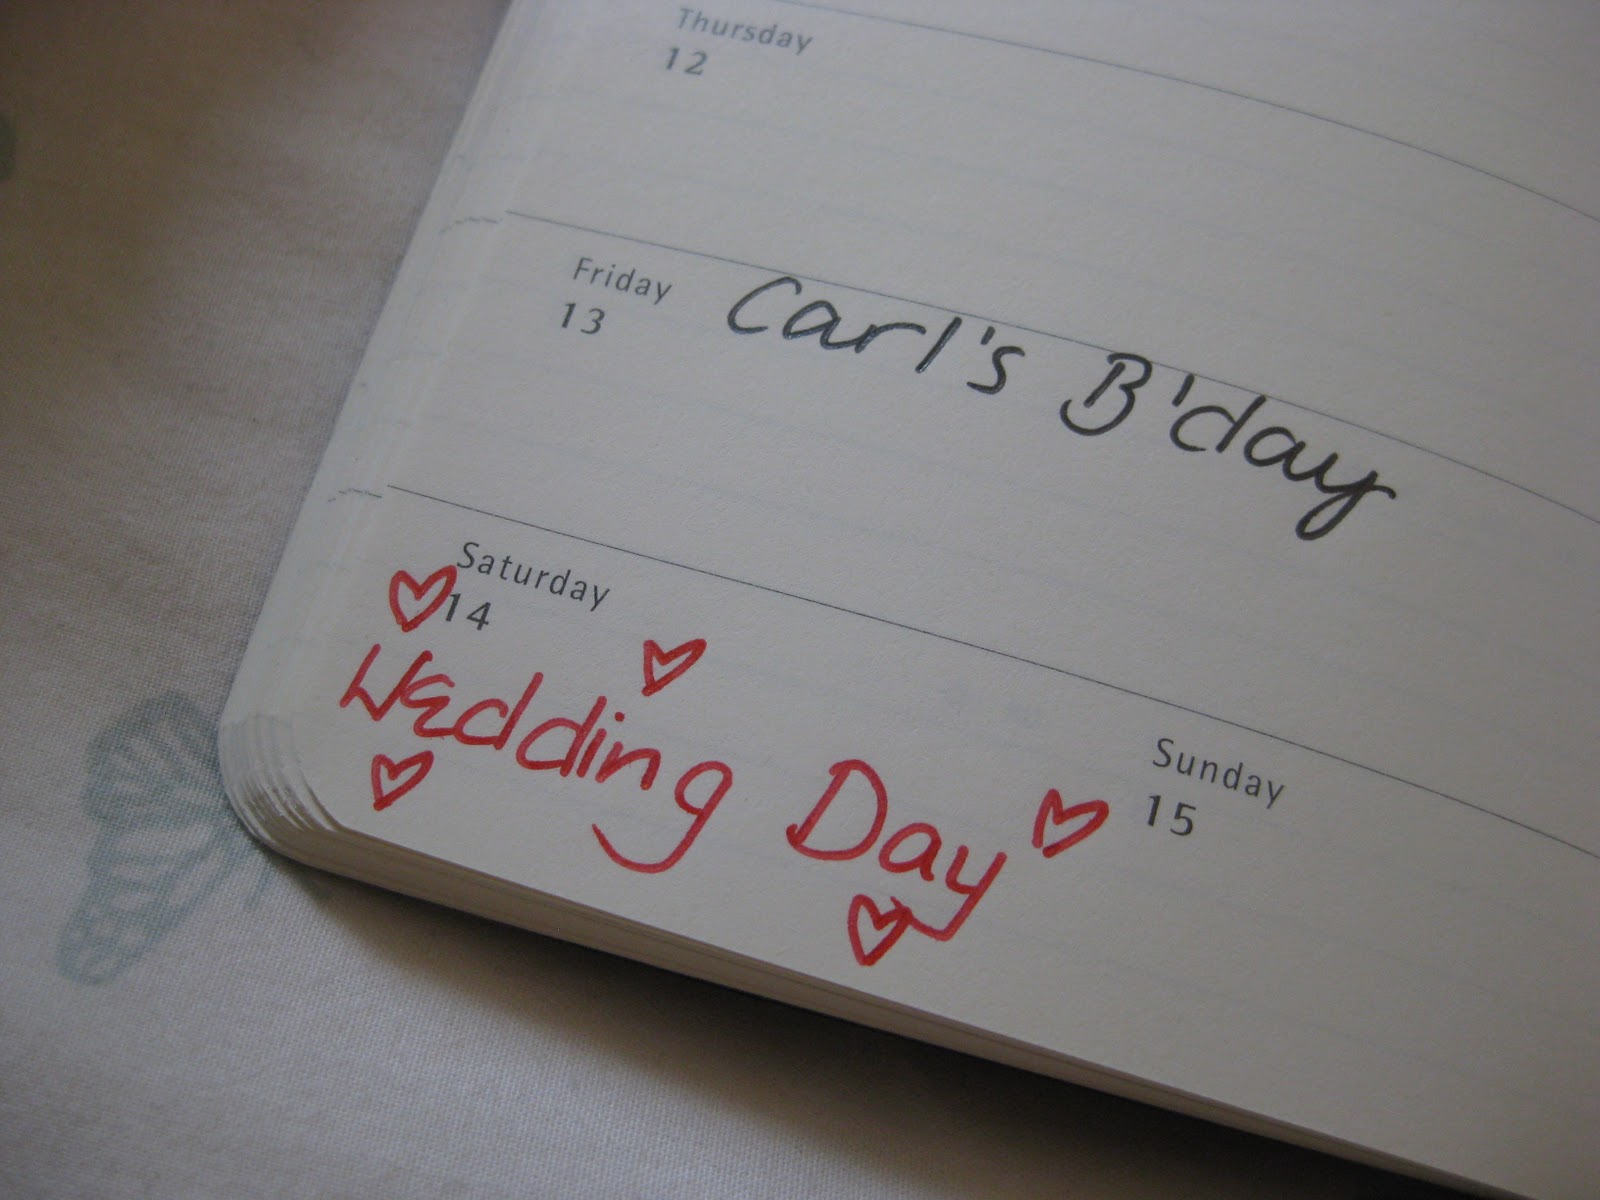 Thursday
12
Friday
13
Carl's B'day
Saturday
14
Wedding Day
Sunday
15